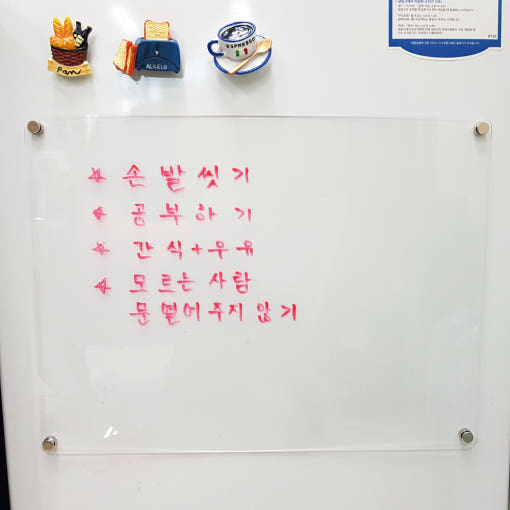 Pan
ANGELO
ESPRESSO
☆ 손 발 씻 기
☆ 공 부 하 기
☆ 간 식 + 우 유
☆ 모 르 는 사 람
문 열 어 주 지 않 기